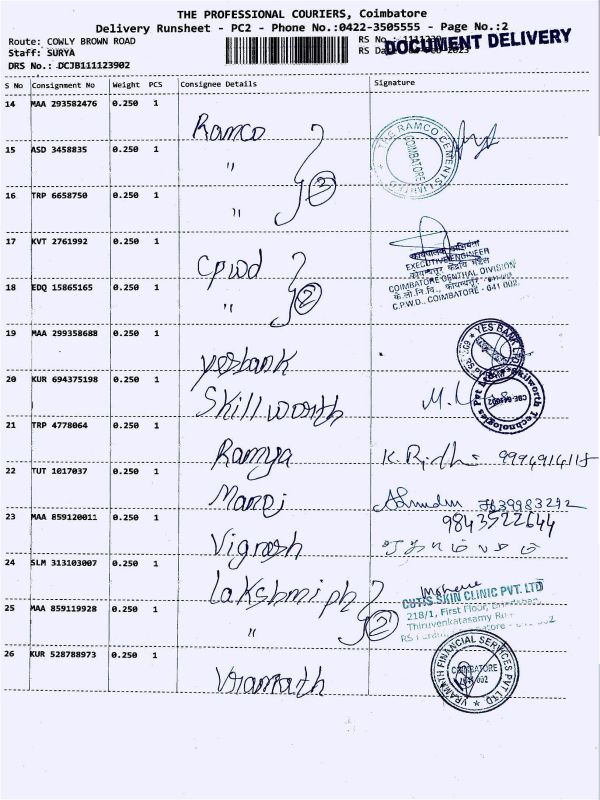 THE PROFESSIONAL COURIERS, Coimbatore
Delivery Runsheet - PC2 - Phone No.:0422-3505555 - Page No.:2
Route: COWLY BROWN ROAD
RS No.:
DOCUMENT DELIVERY
Staff: SURYA
DRS No.: DCJB111123902
S No Consignment No Weight PCS Consignee Details Signature
14 MAA 293582476 0.250 1 Ramco
THE RAMCO CEMENTS LIMITED
COIMBATORE
15 ASD 3458835 0.250 1 "
16 TRP 6658750 0.250 1 " 3
17 KVT 2761992 0.250 1 Cpwd
EXECUTIVE ENGINEER
COIMBATORE CENTRAL DIVISION
C.P.W.D., COIMBATORE - 641 002.
18 EDQ 15865165 0.250 1 " 2
19 MAA 299358688 0.250 1 yesbank
YES BANK LTD
20 KUR 694375198 0.250 1 Skillworth
Skilworth Technologies Pvt
21 TRP 4778064 0.250 1 Ramya
22 TUT 1017037 0.250 1 Manoj
9843522644
23 MAA 859120011 0.250 1 Vignesh
24 SLM 313103007 0.250 1 Lakshmiph
CUTIS SKIN CLINIC PVT. LTD
218/1, First Floor,
Thiruvenkatasamy
25 MAA 859119928 0.250 1 " 2
26 KUR 528788973 0.250 1 Vramath
VRAMATH FINANCIAL SERVICES PVT LTD
COIMBATORE